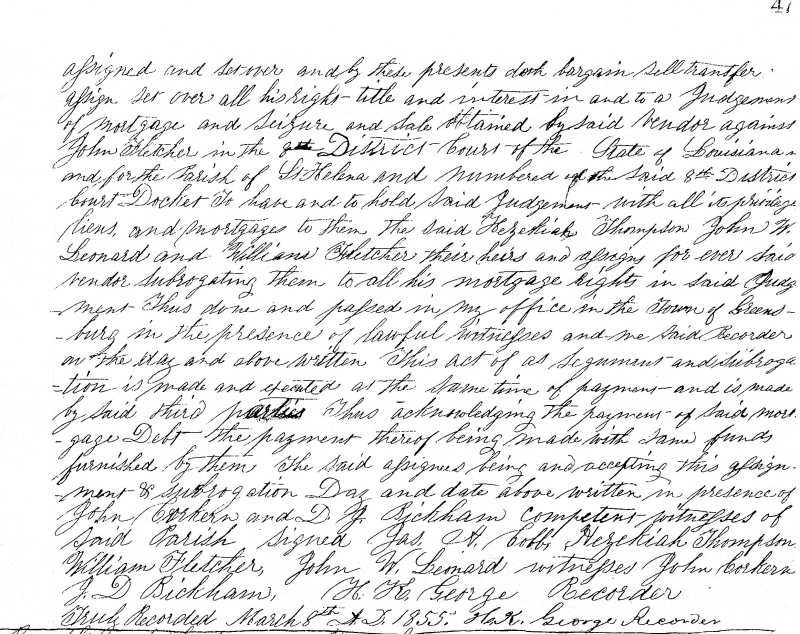 47
assigned and set over and by these presents doth bargain sell transfer
assign set over all his right title and interest in and to a Judgement
of mortgage and seizure and sale obtained by said vendor against
John Fletcher in the 8th District Court of the State of Louisiana in
and for the Parish of St Helena and numbered of the said 8th District
Court Docket To have and to hold said Judgement with all its privilege
liens, and mortgages to them the said Hezekiah Thompson John W.
Leonard and William Fletcher their heirs and assigns for ever said
vendor subrogating them to all his mortgage rights in said Judg
-ment Thus done and passed in my office in the Town of Greens-
-burg in the presence of lawful witnesses and me said Recorder
on the day and above written This act of as segument and subroga
-tion is made and executed at the same time of payment and is made
by said third parties Thus acknowledging the payment of said mort
-gage Debt the payment thereof being made with same funds
furnished by them The said assignees being and accepting this assign-
-ment & subrogation Day and date above written in presence of
John Corkern and D. J. Bickham competent witnesses of
said Parish signed Jas. H. Cobb, Hezekiah Thompson
William Fletcher, John W. Leonard witnesses John Corkern
J. D Bickham, H. K. George Recorder
Truly Recorded March 8th A D. 1855. H. K. George Recorder